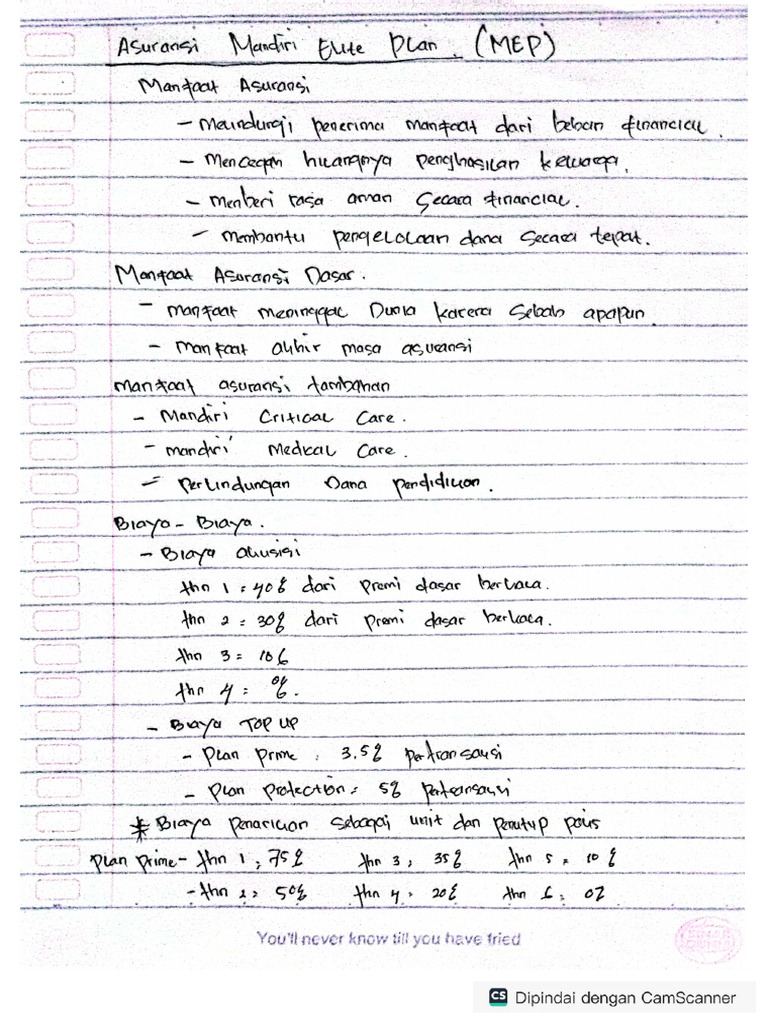 Asuransi Mandiri Elite Plan. (MEP)
Manfaat Asuransi
- Melindungi penerima manfaat dari beban financial.
- Mencegah hilangnya penghasilan keluarga.
- Memberi rasa aman secara financial.
- membantu pengelolaan dana secara tepat.
Manfaat Asuransi Dasar.
- manfaat meninggal Dunia karena sebab apapun.
- manfaat akhir masa asuransi
manfaat asuransi tambahan
- Mandiri Critical Care.
- mandiri Medical Care.
- Perlindungan Dana Pendidikan.
Biaya - Biaya.
- Biaya akusisi
thn 1 = 40% dari Premi dasar berkala.
thn 2 = 30% dari Premi dasar berkala.
thn 3 = 10%
thn 4 = 0%.
- Biaya TOP UP
- Plan Prime : 3.5% pertransaksi
- Plan Protection = 5% pertransaksi
* Biaya penarikan sebagai unit dan penutup polis
Plan Prime - thn 1 : 75% thn 3 : 35% thn 5 = 10%
- thn 2 : 50% thn 4 : 20% thn 6 : 0%
You'll never know till you have tried
CS Dipindai dengan CamScanner